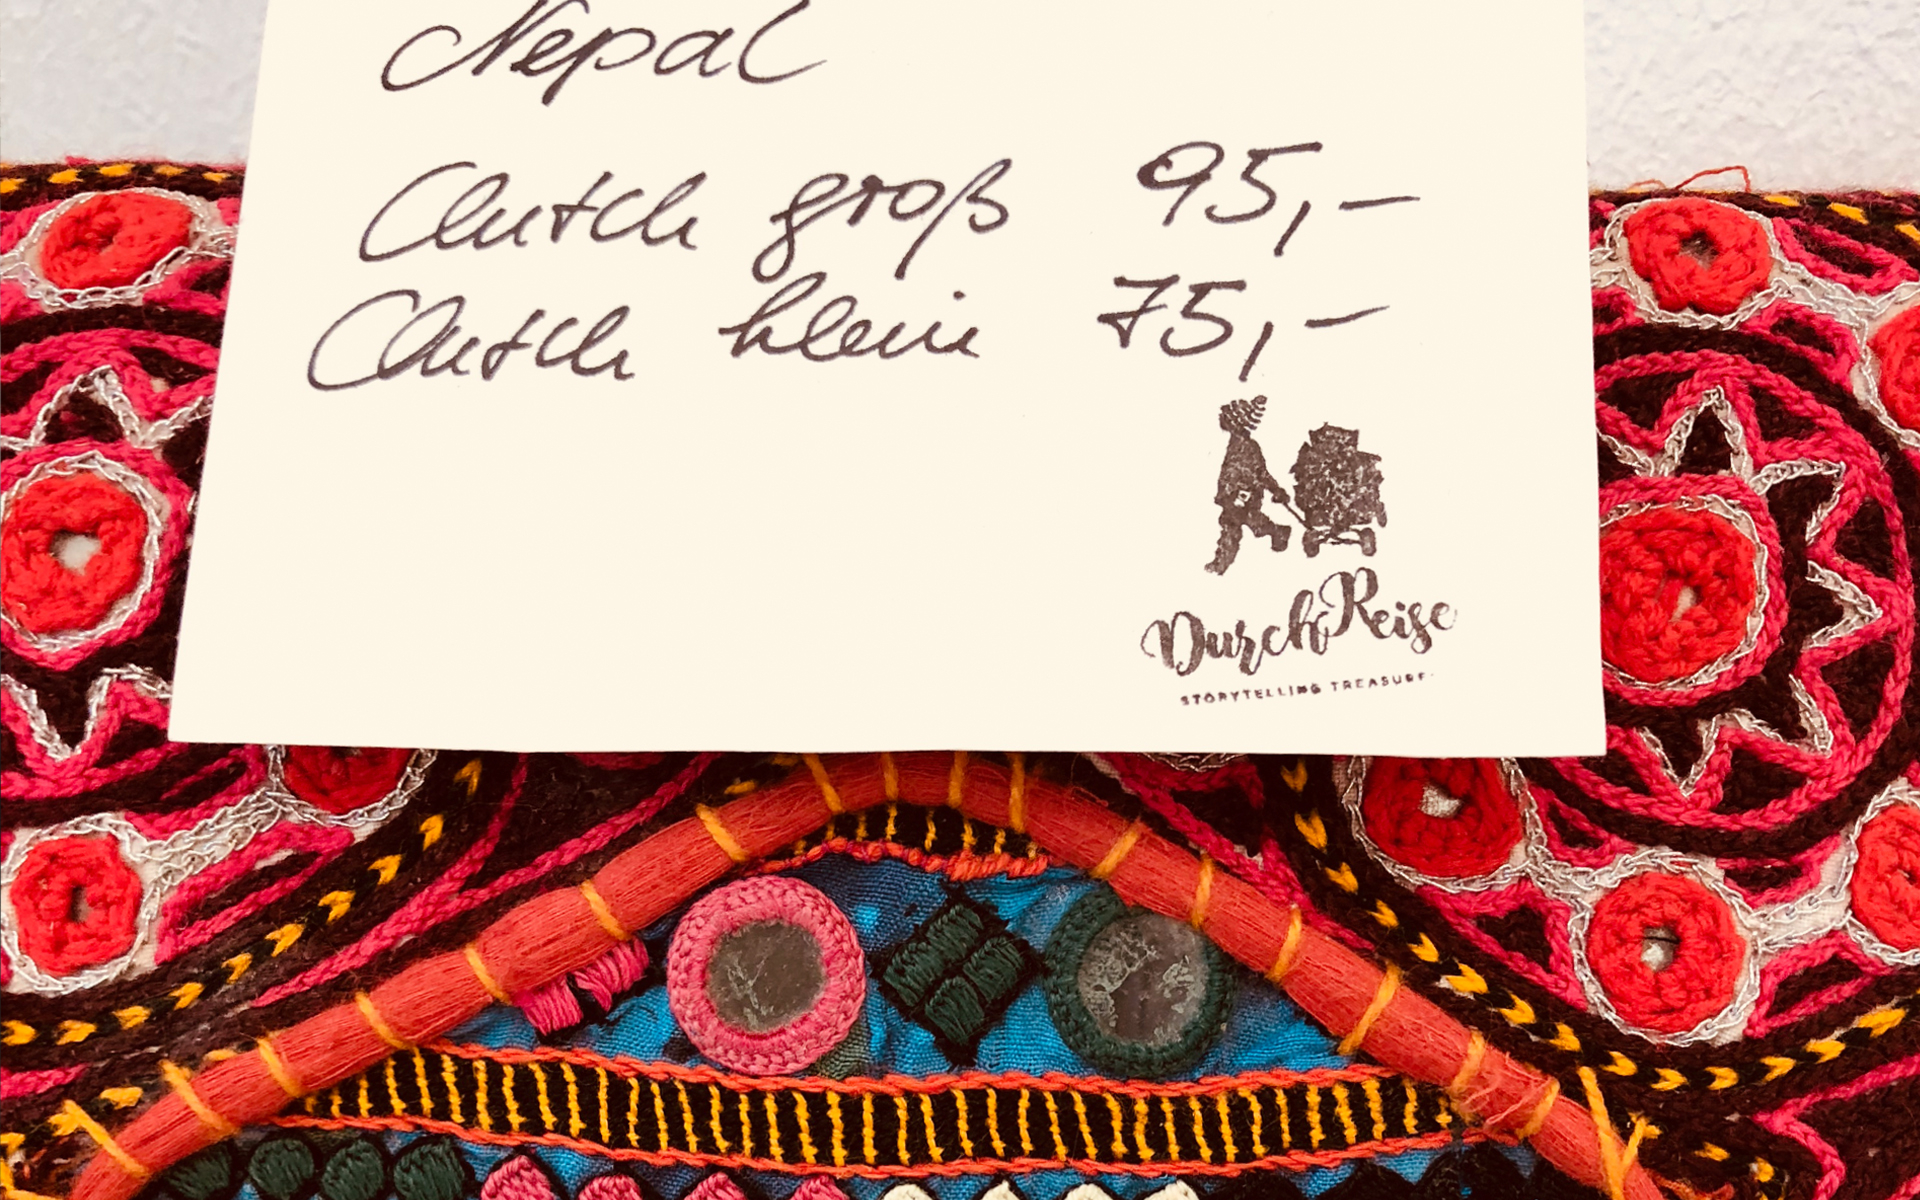 Nepal
Clutch groß 95,-
Clutch klein 75,-
DurchReise
STORYTELLING TREASURE